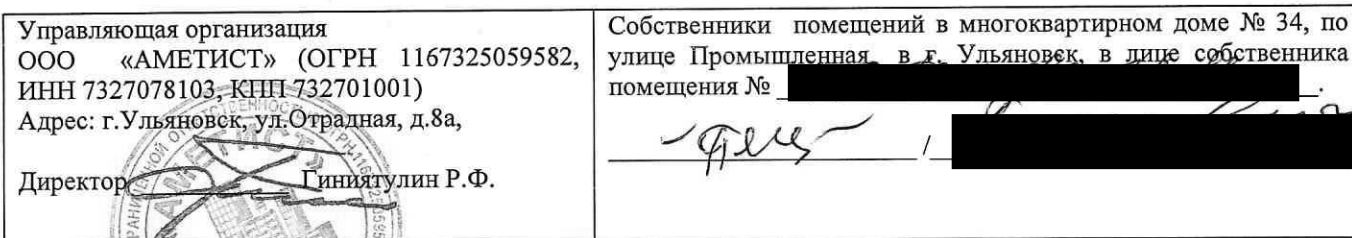 Управляющая организация
ООО «АМЕТИСТ» (ОГРН 1167325059582,
ИНН 7327078103, КПП 732701001)
Адрес: г.Ульяновск, ул.Отрадная, д.8а,
Директор Гиниятулин Р.Ф.
Собственники помещений в многоквартирном доме № 34, по
улице Промышленная в г. Ульяновск, в лице собственника
помещения № .
/